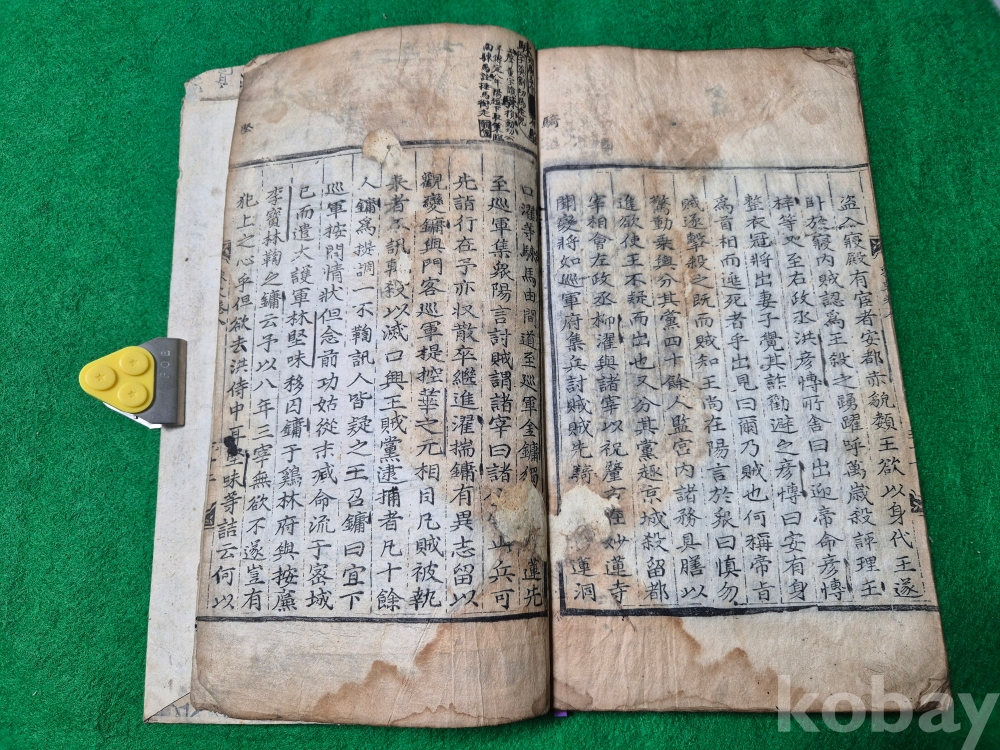 盗入寢殿有宦者安都赤貌類王欲以身代王遂
卧於寢内賊認爲王殺之踴躍呼萬歲殺評理王
梓等又至右政丞洪彦愽所舍曰出迎帝命彦愽
整衣冠將出妻子覺其詐勸避之彦愽曰安有身
爲首相而逃死者乎出見曰爾乃賊也何稱帝旨
賊遂擊殺之既而賊知王尚在陽言於衆曰慎勿
驚動乗輿分其黨四十餘人監宫内諸務具膳以
進欲使王不疑而出也又分其黨趣京城殺留都
宰相會左政丞柳濯與諸宰以祝釐方在妙蓮寺
聞變將如巡軍府集兵討賊賊先騎蓮洞
騎
口濯等騎馬由間道至巡軍金鏞獨蓮先
至巡軍集衆陽言討賊謂諸宰曰諸兵可
先詣行在予亦収散卒繼進濯揣鏞有異志留以
觀變鏞與門客巡軍提控華之元相目凡賊被執
来者不訊再殺以滅口興王賊黨逮捕者凡十餘
人鏞爲揔調一不鞫訊人皆疑之王召鏞曰宜下
巡軍按問情狀但念前功姑從末减命流于密城
已而遣大護軍林堅味移囚鏞于鷄林府與按廉
李寳林鞫之鏞云予以八年三宰無欲不遂豈有
犯上之心乎但欲去洪侍中耳堅味等詰云何以
kobay